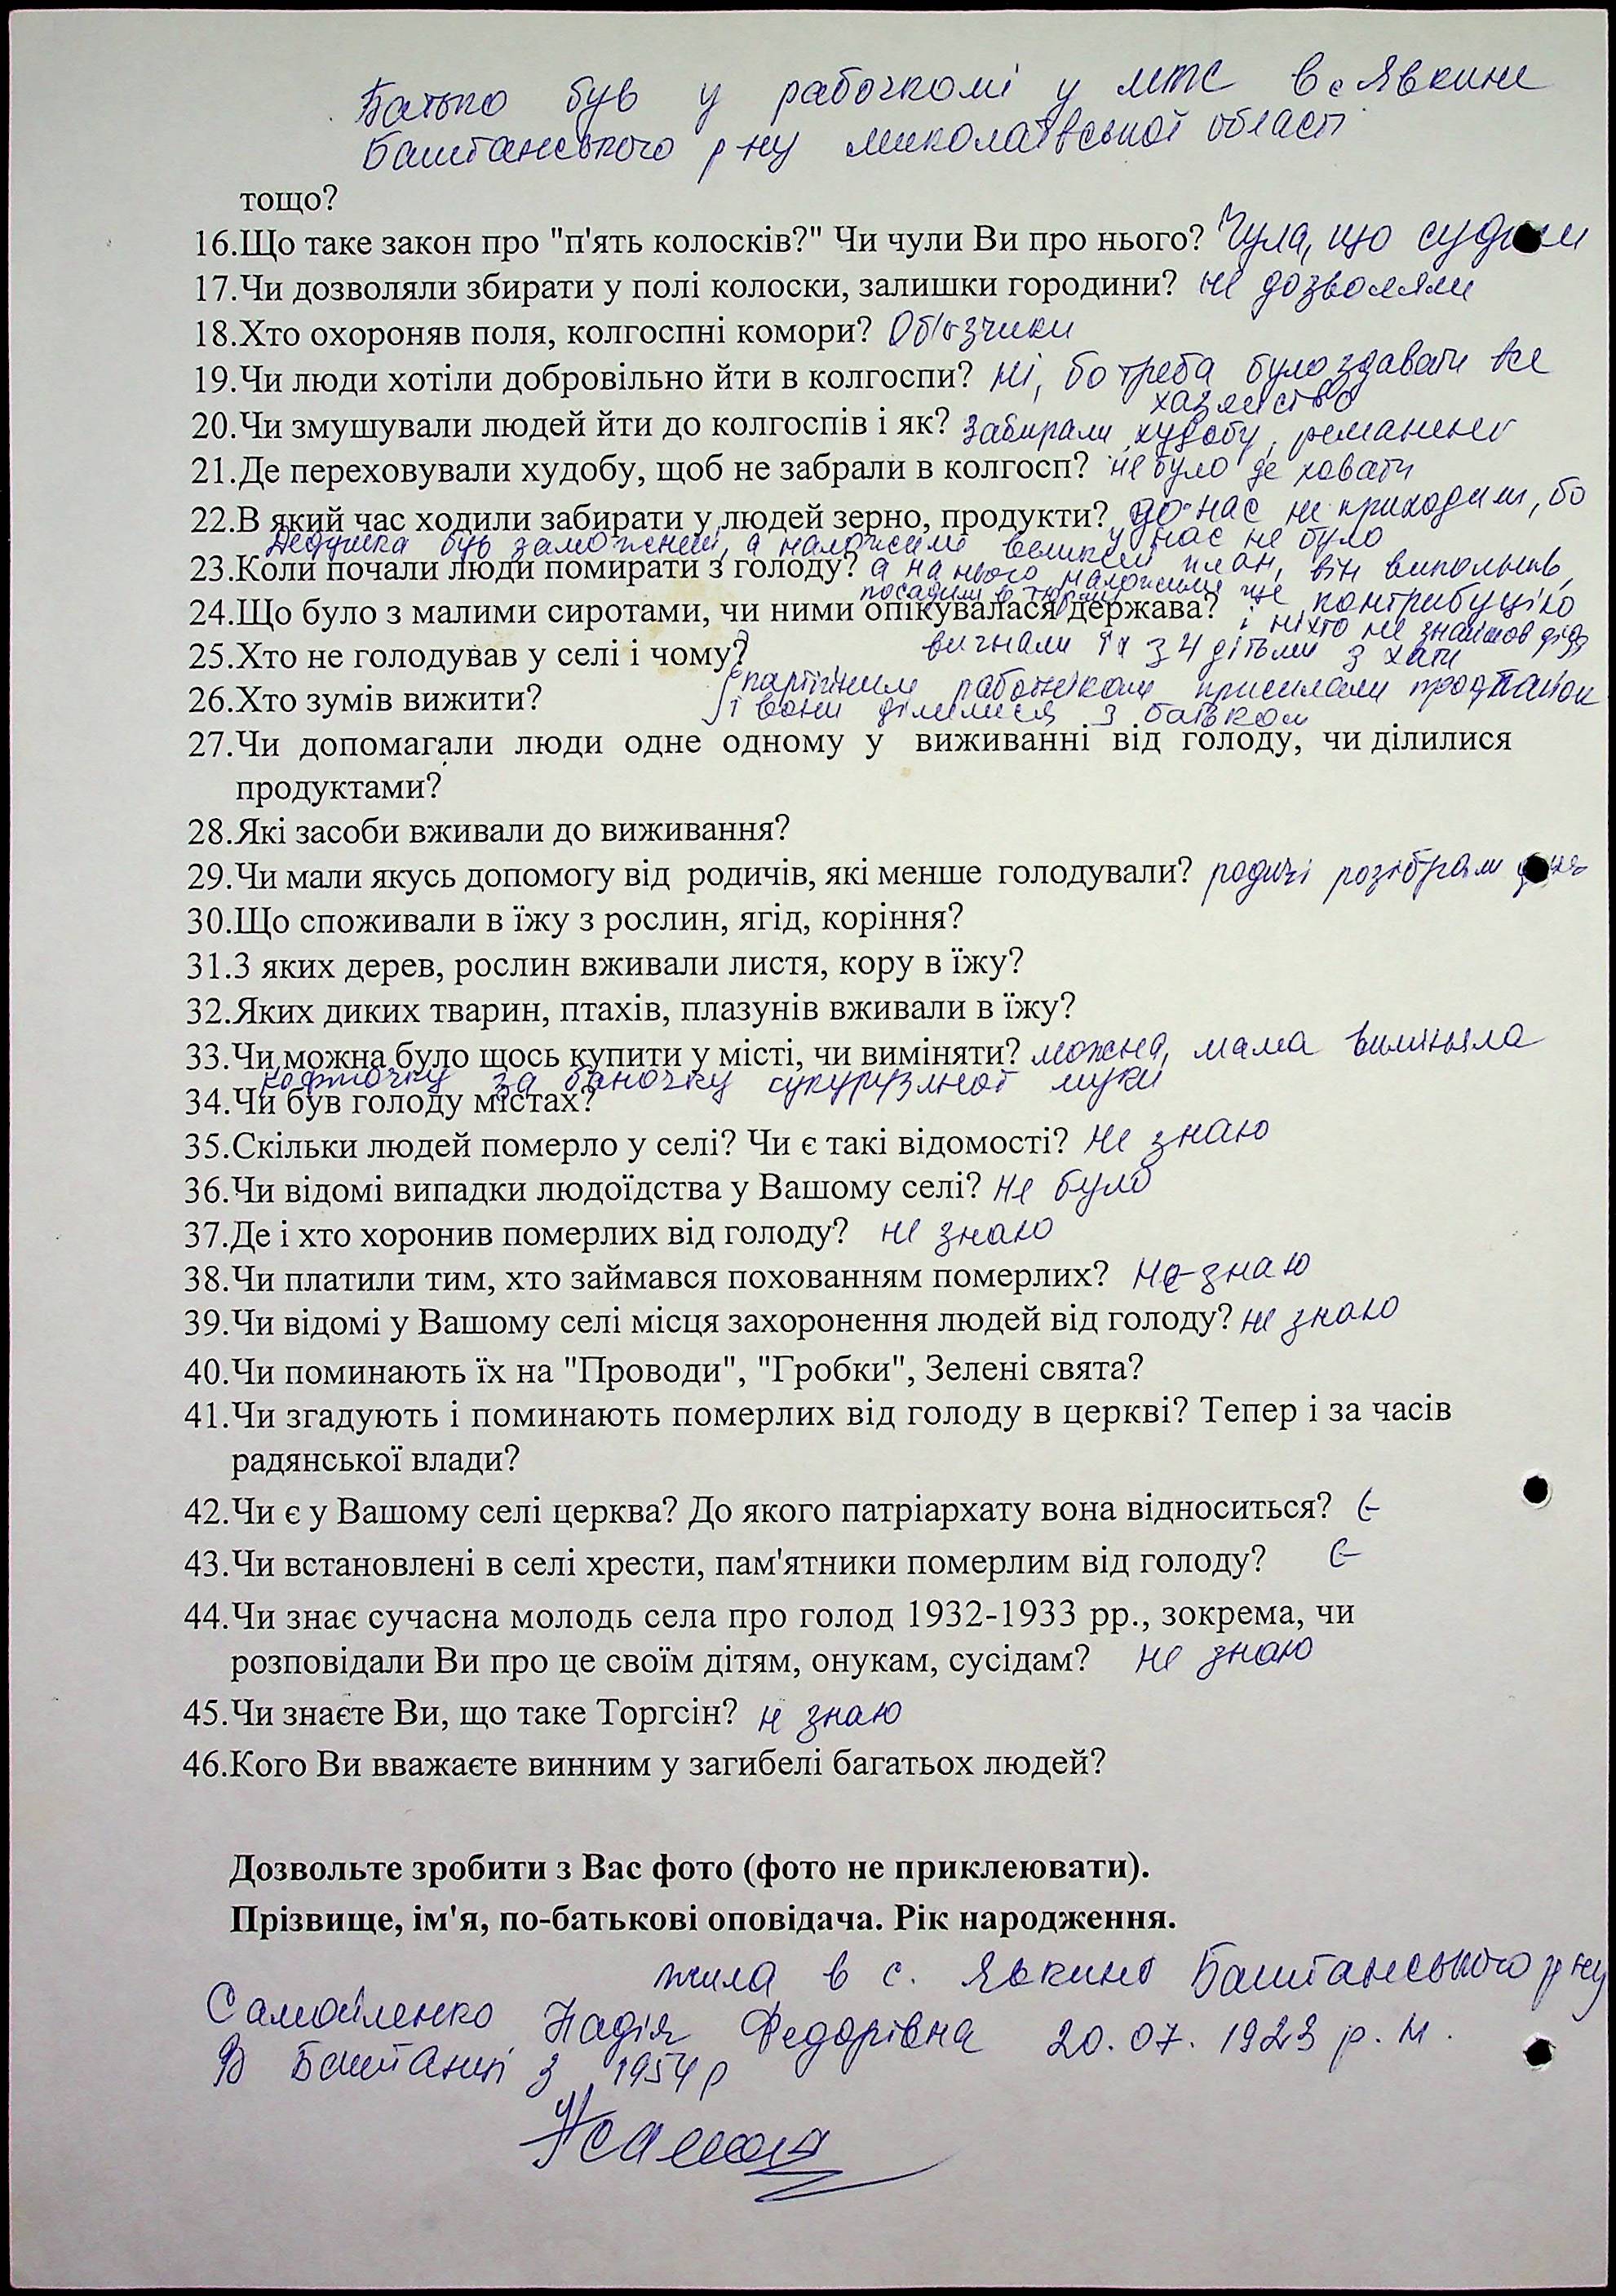 Батько був у рабочкомі у МТС в с Явкине
Баштанського р-ну Миколаївської області
тощо?
16.Що таке закон про "п'ять колосків?" Чи чули Ви про нього? Чула, що судили
17.Чи дозволяли збирати у полі колоски, залишки городини? не дозволяли
18.Хто охороняв поля, колгоспні комори? Об'їзчики
19.Чи люди хотіли добровільно йти в колгоспи? Ні, бо треба було здавати все
хазяйство
20.Чи змушували людей йти до колгоспів і як? Забирали худобу, реманент
21.Де переховували худобу, щоб не забрали в колгосп? не було де ховати
22.В який час ходили забирати у людей зерно, продукти? до нас не приходили, бо
у нас не було
Дедушка був заможений, а наложили великий план, він виполнив,
23.Коли почали люди помирати з голоду? а на нього наложили ще контрибуцію
посадили в тюрму
24.Що було з малими сиротами, чи ними опікувалася держава? і ніхто не знайшов діда
25.Хто не голодував у селі і чому? вигнали їх з 4 дітьми з хати
26.Хто зумів вижити? партійним работнікам присилали продпайок
і вони ділилися з батьком
27.Чи допомагали люди одне одному у виживанні від голоду, чи ділилися
продуктами?
28.Які засоби вживали до виживання?
29.Чи мали якусь допомогу від родичів, які менше голодували? родичі розібрали
30.Що споживали в їжу з рослин, ягід, коріння?
31.З яких дерев, рослин вживали листя, кору в їжу?
32.Яких диких тварин, птахів, плазунів вживали в їжу?
33.Чи можна було щось купити у місті, чи виміняти? можна, мама виміняла
кофточку за баночку кукурузяної муки
34.Чи був голоду містах?
35.Скільки людей померло у селі? Чи є такі відомості? Не знаю
36.Чи відомі випадки людоїдства у Вашому селі? Не було
37.Де і хто хоронив померлих від голоду? не знаю
38.Чи платили тим, хто займався похованням померлих? Не знаю
39.Чи відомі у Вашому селі місця захоронення людей від голоду? не знаю
40.Чи поминають їх на "Проводи", "Гробки", Зелені свята?
41.Чи згадують і поминають померлих від голоду в церкві? Тепер і за часів
радянської влади?
42.Чи є у Вашому селі церква? До якого патріархату вона відноситься? Є
43.Чи встановлені в селі хрести, пам'ятники померлим від голоду? Є
44.Чи знає сучасна молодь села про голод 1932-1933 рр., зокрема, чи
розповідали Ви про це своїм дітям, онукам, сусідам? не знаю
45.Чи знаєте Ви, що таке Торгсін? не знаю
46.Кого Ви вважаєте винним у загибелі багатьох людей?
Дозвольте зробити з Вас фото (фото не приклеювати).
Прізвище, ім'я, по-батькові оповідача. Рік народження.
жила в с. Явкино Баштанського р ну
Самойленко Надія Федорівна 20.07.1923 р.н.
В Баштанці з 1954 р